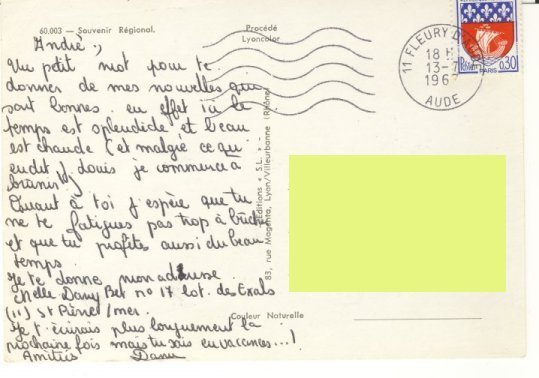 60.003 — Souvenir Régional.
Procédé
Lyoncolor
André.,
Un petit mot pour te
donner de mes nouvelles qui
sont bonnes. en effet ici le
temps est splendide et l'eau
est chaude (et malgré ce qu
en dit J. Louis je commence à
brunir)
Quant à toi j'espère que tu
ne te fatigues pas trop à
et que tu profites aussi du beau
temps.
Je te donne mon adresse.
Melle Dany Bet no 17 lot. des
(11) St Pierre/mer.
Je t'écrirais plus longuement la
prochaine fois mais tu sais en vacances...!
Amitiés Dany
Editions « S.L. »
83, rue Magenta, Lyon/Villeurbanne (Rhône)
Couleur Naturelle
11 FLEURY D'AUDE
18 H
13-7
196
AUDE
0,30
PARIS